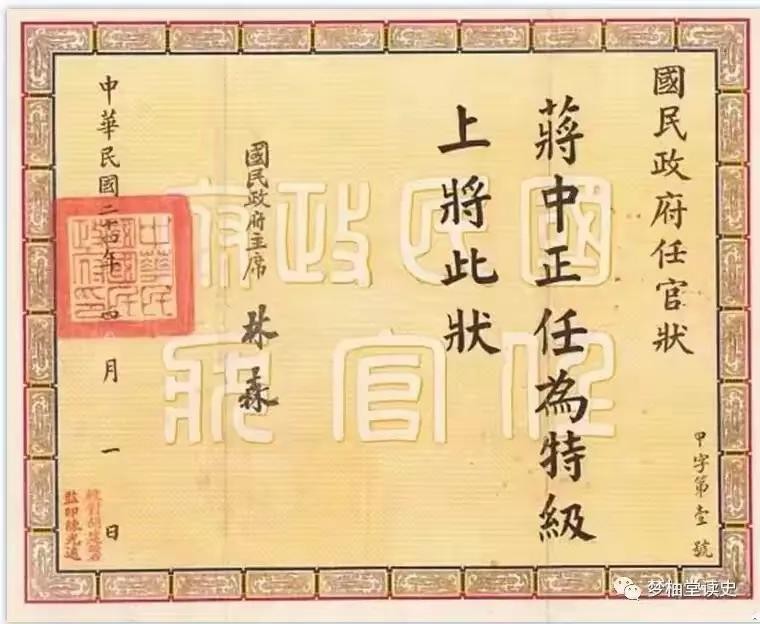 國民政府任官狀
甲字第壹號
蔣中正任為特級
上將此狀
國民政府主席 林森
中華民國二十四年四月一日
中華民
國國民
政府印
校對胡建磐
監印陳光遠
國民政府
任官狀
梦柚堂读史